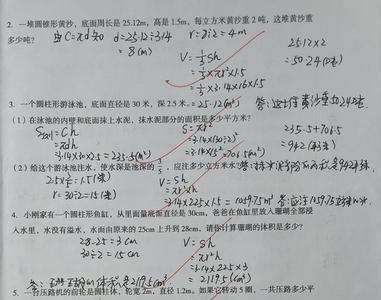 2. 一堆圆锥形黄沙，底面周长是 25.12m，高是 1.5m，每立方米黄沙重 2 吨，这堆黄沙重
多少吨？
由C=πd知 d=25.12÷3.14
=8(m)
r=8÷2=4m
V=⅓Sh
=⅓×πr²×1.5
=⅓×3.14×16×1.5
=25.12(m³)
25.12×2
=50.24(吨)
答:这堆黄沙重50.24吨.
3. 一个圆柱形游泳池，底面直径是 30 米，深 2.5 米。
(1) 在泳池的内壁和底面抹上水泥，抹水泥部分的面积是多少平方米？
=Ch
=πdh
=3.14×30×2.5=235.5(m²)
S=πr²
=3.14×(30÷2)²
=3.14×15²=706.5(m²)
235.5+706.5
=942(
(2) 给这个游泳池注水，使水深是池深的 3/5，应注多少立方米水？
2.5×3/5=1.5(米)
r=30÷2=15(米)
V=Sh
=πr²×h
=3.14×225×1.5=1059.75m³
4. 小刚家有一个圆柱形鱼缸，从里面量底面直径是 30cm，爸爸在鱼缸里放入珊瑚全部浸
入水里，水没有溢出，水面由原来的 25cm 上升到 28cm，请你计算珊瑚的体积是多少？
28-25=3cm
30÷2=15cm
V=Sh
=πr²h
=3.14×225×3
=2119.5(cm³)
2119.5cm³.
5. 一台压路机的前轮是圆柱体，轮宽 2m，直径 1.2m。如果它转动 5 圈，一共压路多少平